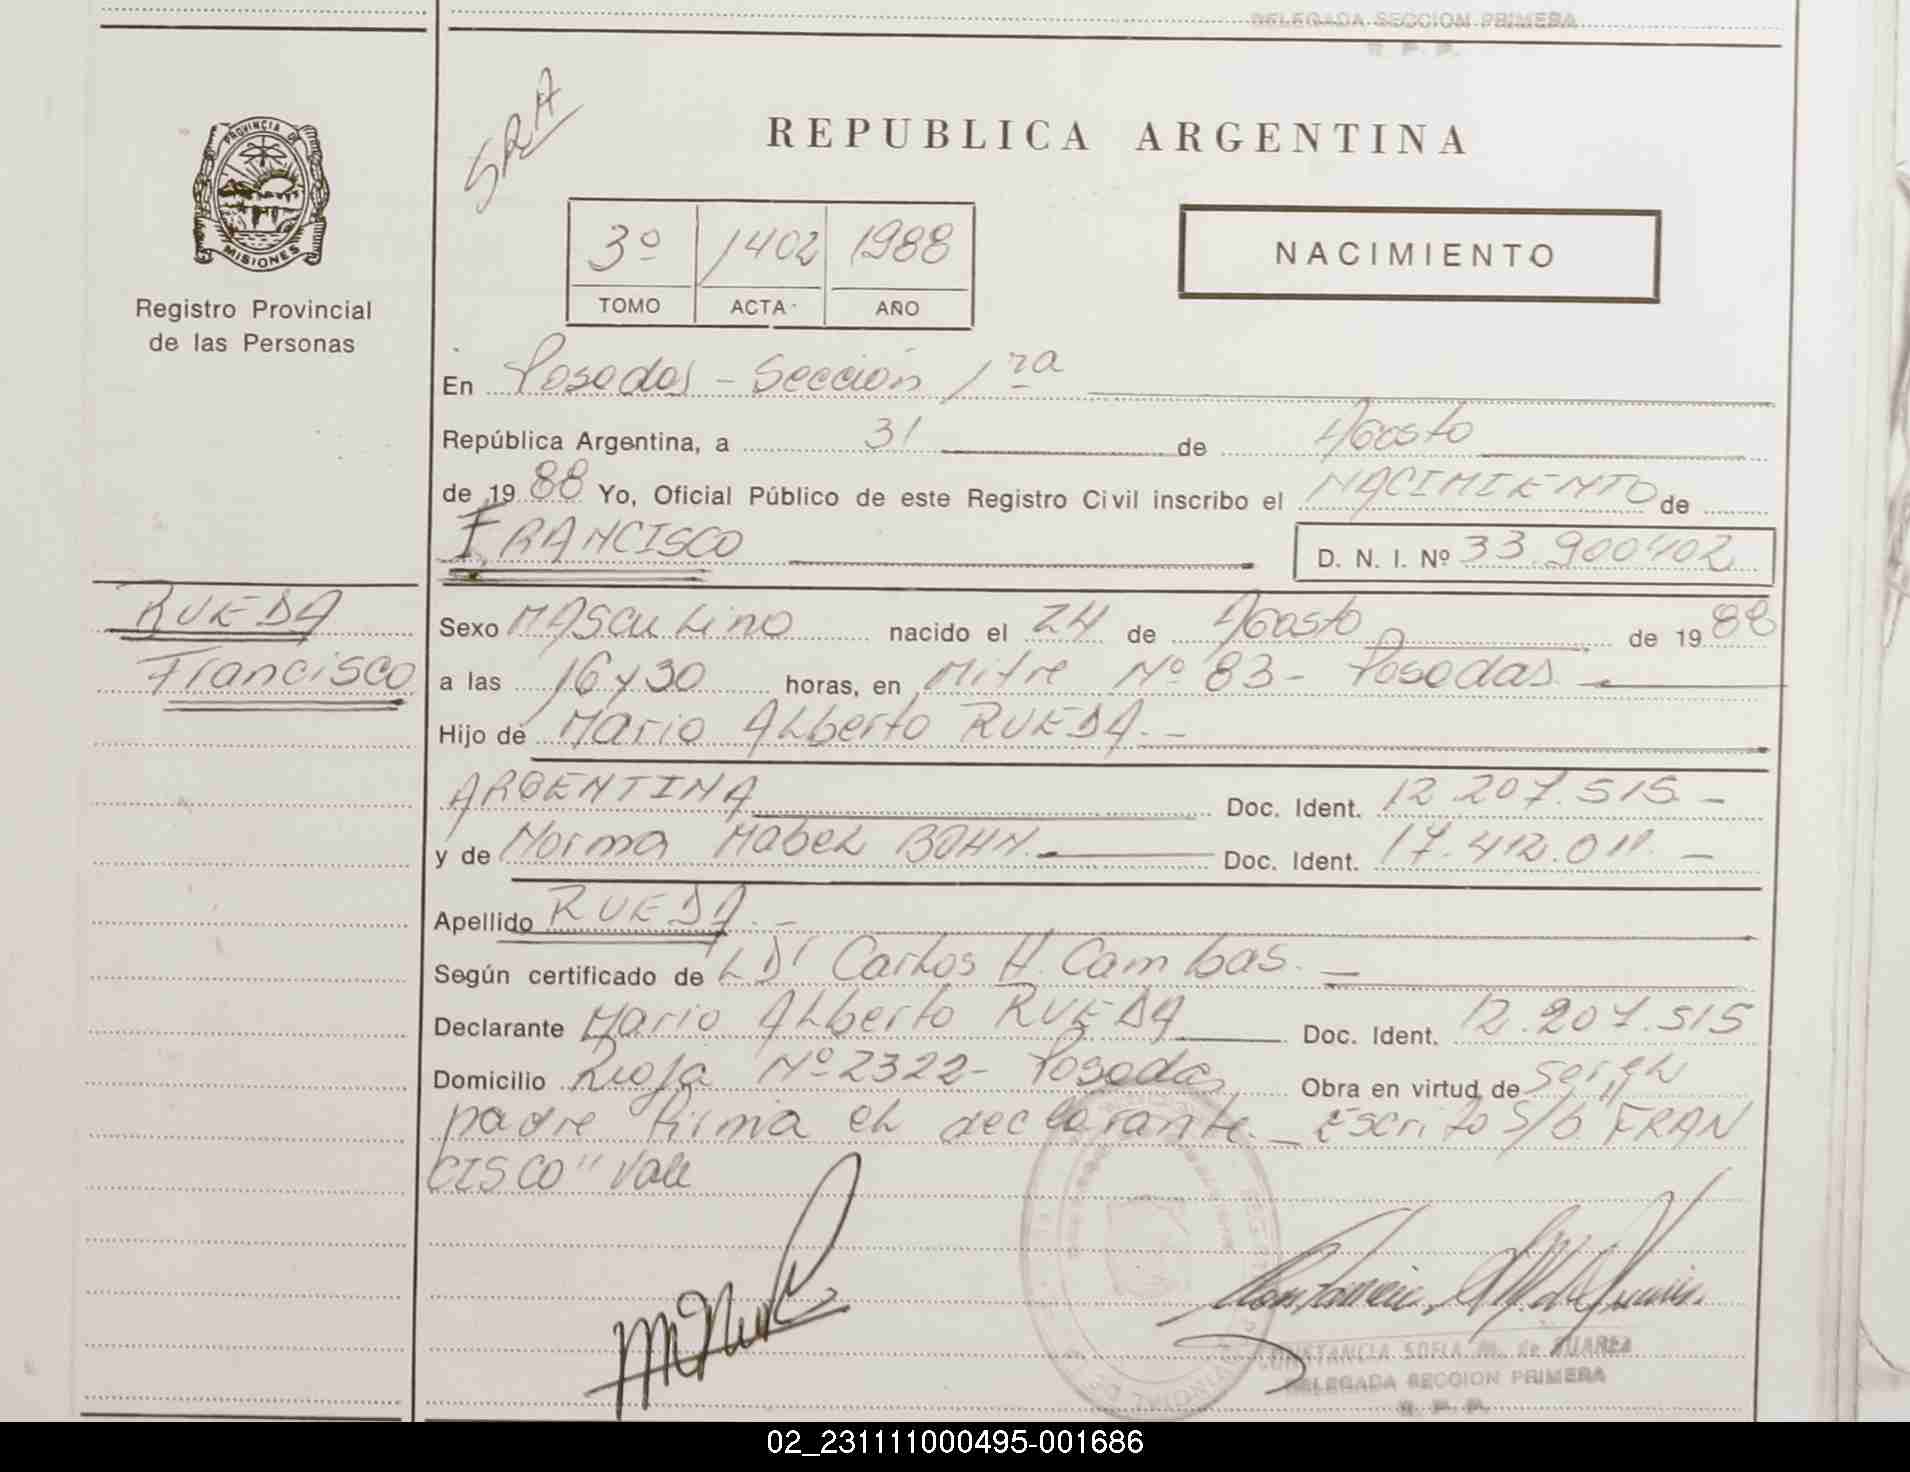 DELEGADA SECCION PRIMERA
R. P. P.
SRA
REPUBLICA ARGENTINA
PROVINCIA DE
MISIONES
Registro Provincial
de las Personas
3º 1402 1988
TOMO ACTA AÑO
NACIMIENTO
En Posadas - Sección 1ra
República Argentina, a 31 de Agosto
de 1988 Yo, Oficial Público de este Registro Civil inscribo el NACIMIENTO de
FRANCISCO D. N. I. Nº 33.900402
RUEDA
Francisco
Sexo MAScuLino nacido el 24 de Agosto de 1988
a las 16 y 30 horas, en Mitre Nº 83 - Posadas
Hijo de Mario ALberto RUEDA. -
ARGENTINA Doc. Ident. 12.207.515 -
y de Norma MabeL BOHN. Doc. Ident. 17.412.011. -
Apellido RUEDA. -
Según certificado de L Dr CarLos H. Cambas. -
Declarante Mario ALberto RUEDA Doc. Ident. 12.207.515
Domicilio Rioja Nº 2322 - Posadas Obra en virtud de ser eL
padre firma eL declarante. - Escrito S/b "FRAN
CISCO" Vale
CONSTANCIA SOFIA M. de SUAREZ
DELEGADA SECCION PRIMERA
R. P. P.
02_231111000495-001686